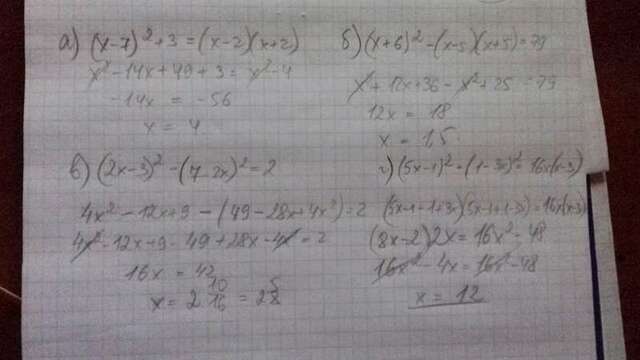 а) (x-7)²+3=(x-2)(x+2)
x²-14x+49+3=x²-4
-14x = -56
x = 4
б) (x+6)²-(x-5)(x+5)=79
x²+12x+36-x²+25=79
12x = 18
x = 1,5
в) (2x-3)²-(7-2x)²=2
4x²-12x+9-(49-28x+4x²)=2
4x²-12x+9-49+28x-4x²=2
16x = 42
x = 2 10/16 = 2 5/8
г) (5x-1)²-(1-3x)²=16x(x-3)
(5x-1-1+3x)(5x-1+1-3x)=16x(x-3)
(8x-2)2x=16x²-48
16x²-4x=16x²-48
x = 12